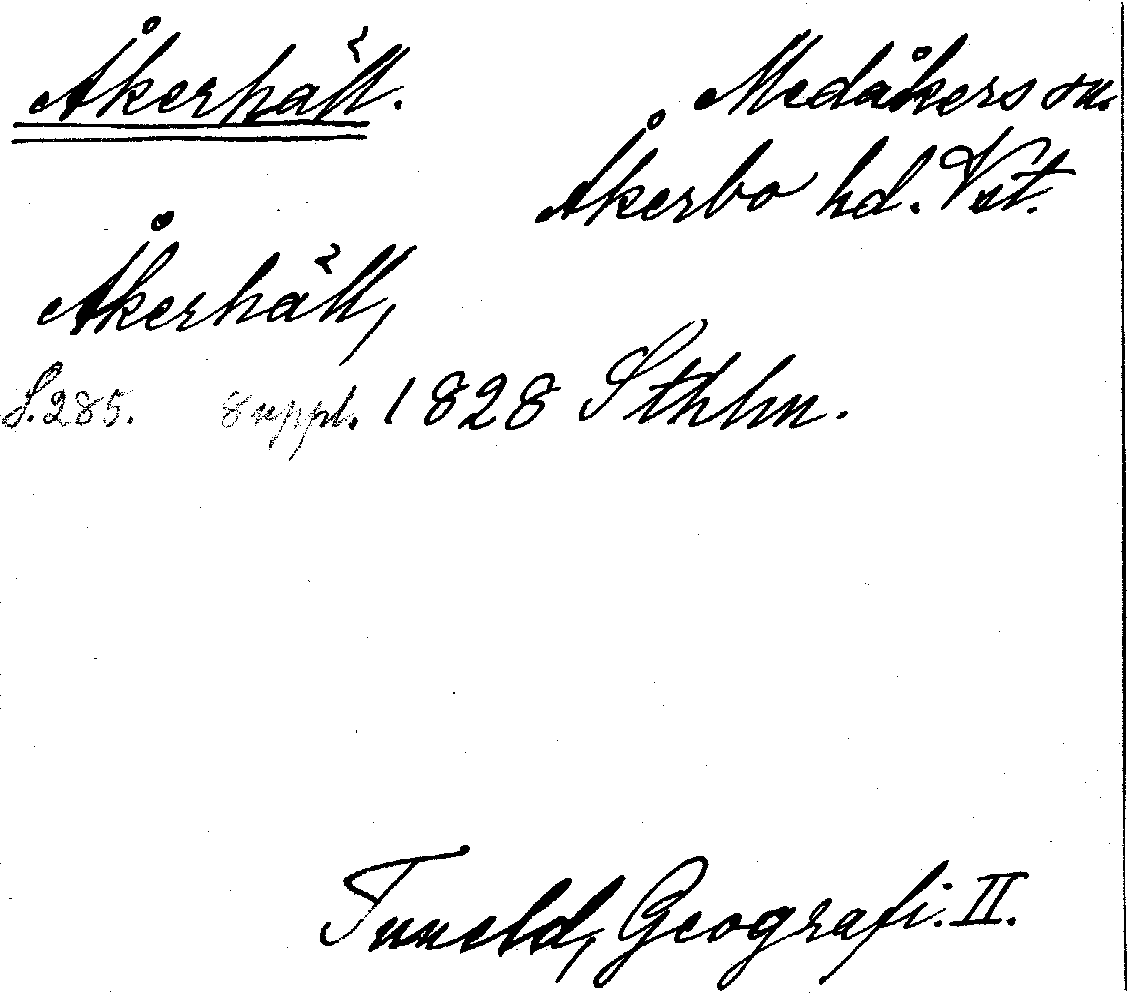 Åkerhäll.
Medåkers sn.
Åkerbo hd. Vst.
Åkerhäll,
S. 285. Suppl. 1828 Sthlm.
Tuneld, Geografi. II.